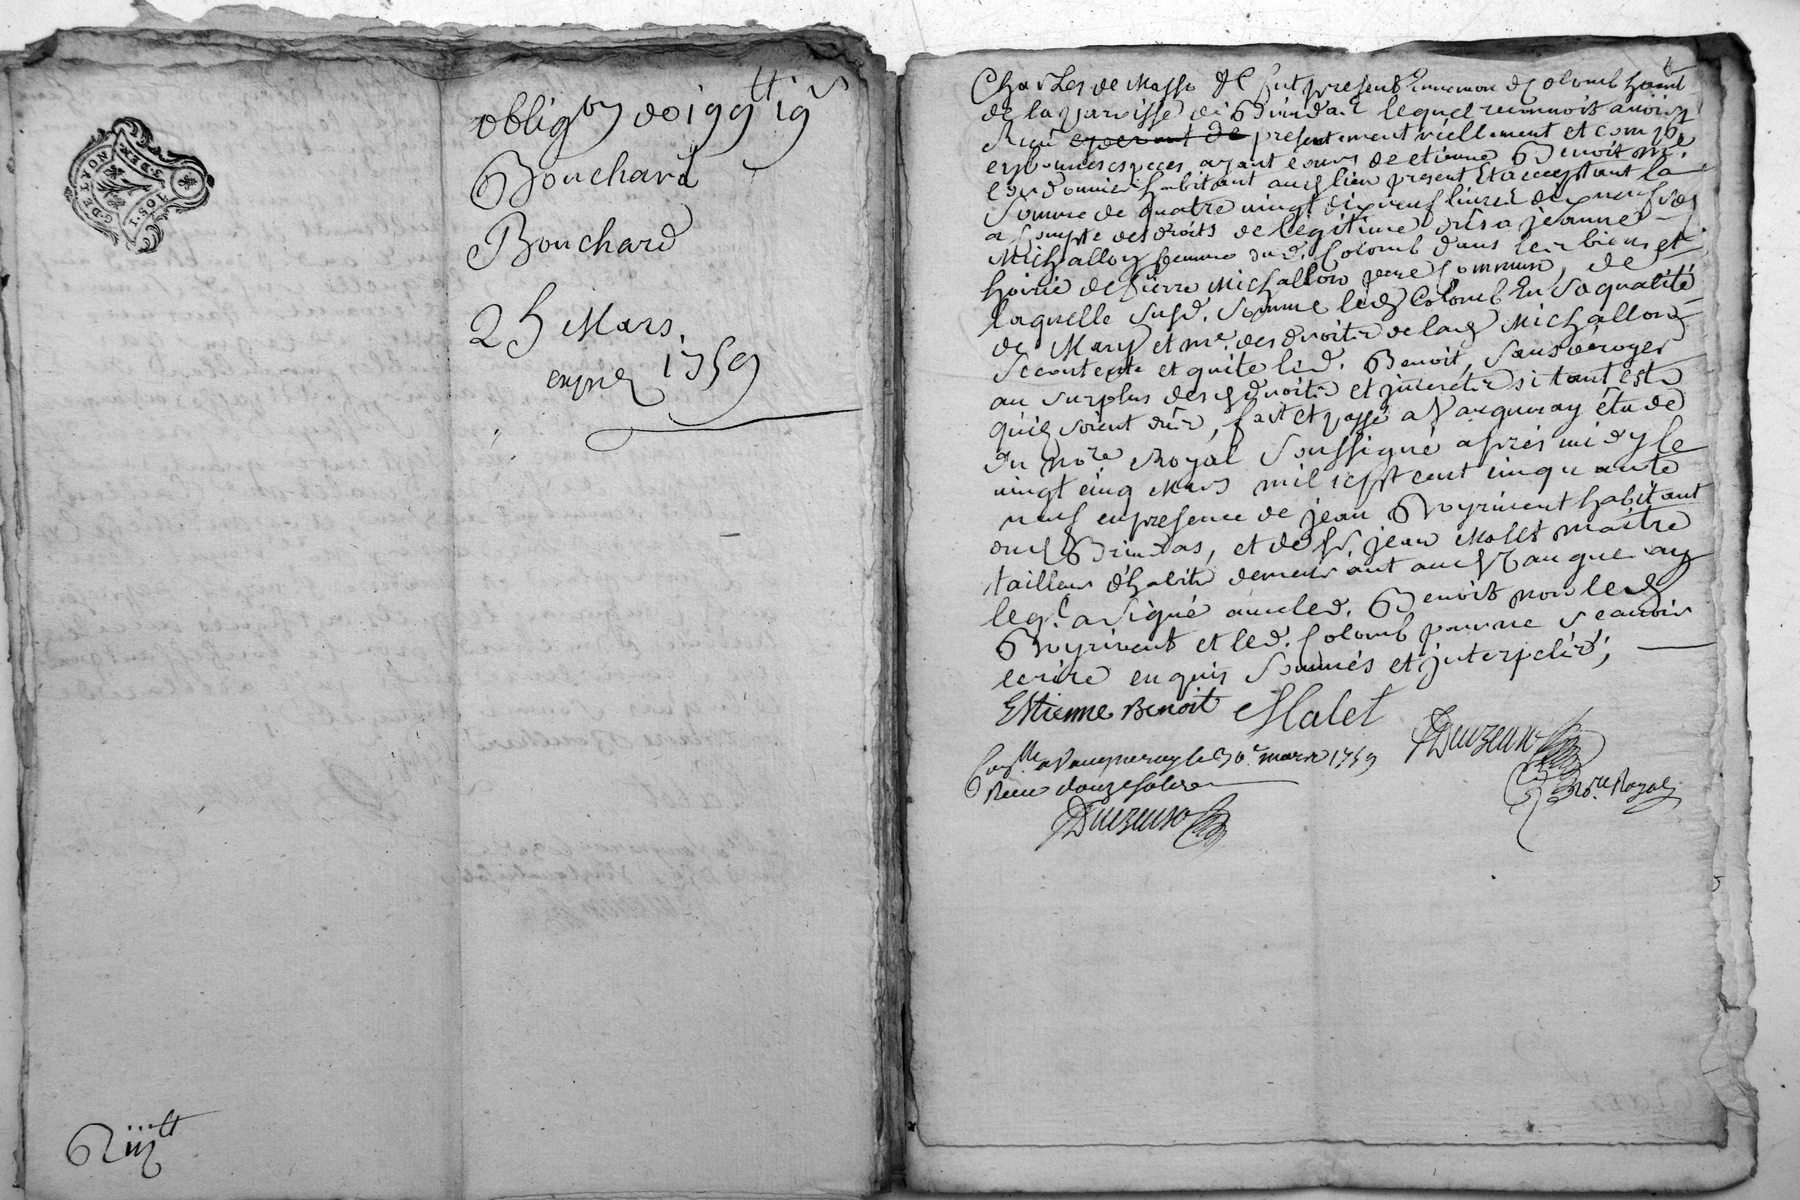 GDE LYON
1. SOL
S. DEN.
obligon de 199lt 19s
Bouchard
Bouchard
25 Mars
1759
Riiijlt
Charles de Masso &c fut present Ennemon Colomb habitant
de la parroisse de Brindas lequel reconnoit avoir
Reçu presentement réellement et
en bonnes especes ayant cours de etienne Benoit me
Cordonnier habitant aud lieu present et acceptant la
Somme de quatre vingt dix neuf livres dix neuf sols
a compte des droits de légitime dûs a jeanne
Michallon femme dud. Colomb dans les biens et
hoirie de Pierre Michallon pere commun, de
laquelle susd. somme led Colomb En sa qualité
de Mary et me. des droits de lad Michallon
Se contente et quite led. Benoit, sans déroger
au surplus desd droits et interets si tant est
qu'ils soient dûs, fait et passé a Vaugneray étude
du nore Royal Soussigné après midy le
vingt cinq Mars mil sept cent cinquante
neuf en presence de jean Guyrivent habitant
aud Brindas, et de Sr. jean Malet maitre
tailleur d'habits demeurant aud Vaugneray
leql. a signé avec led. Benoit non led
Guyrivent et led. Colomb pour ne sçavoir
ecrire enquis sommés et interpelés,
Estienne Benoit Malet
Conllé a Vaugneray le 30e mars 1759
Reçu douze sols
nore Royal